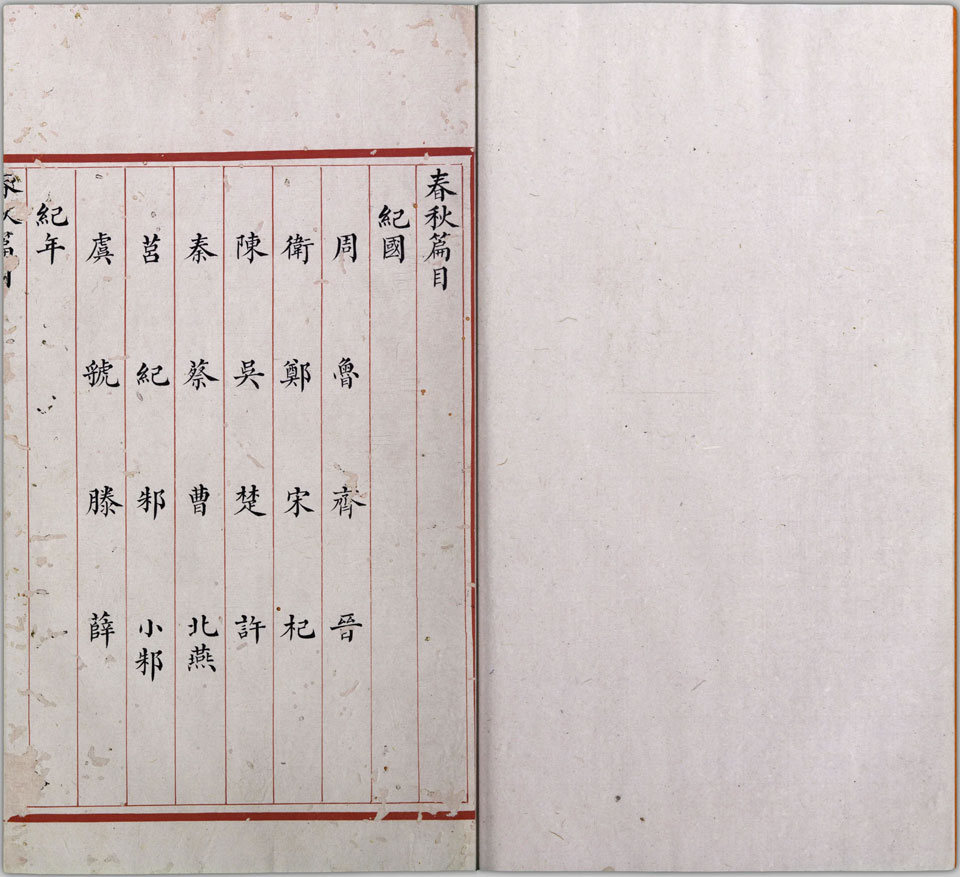 春秋篇目
紀國
周 魯 齊 晉
衛 鄭 宋 杞
陳 吳 楚 許
秦 蔡 曹 北燕
莒 紀 邾 小邾
虞 虢 滕 薛
紀年